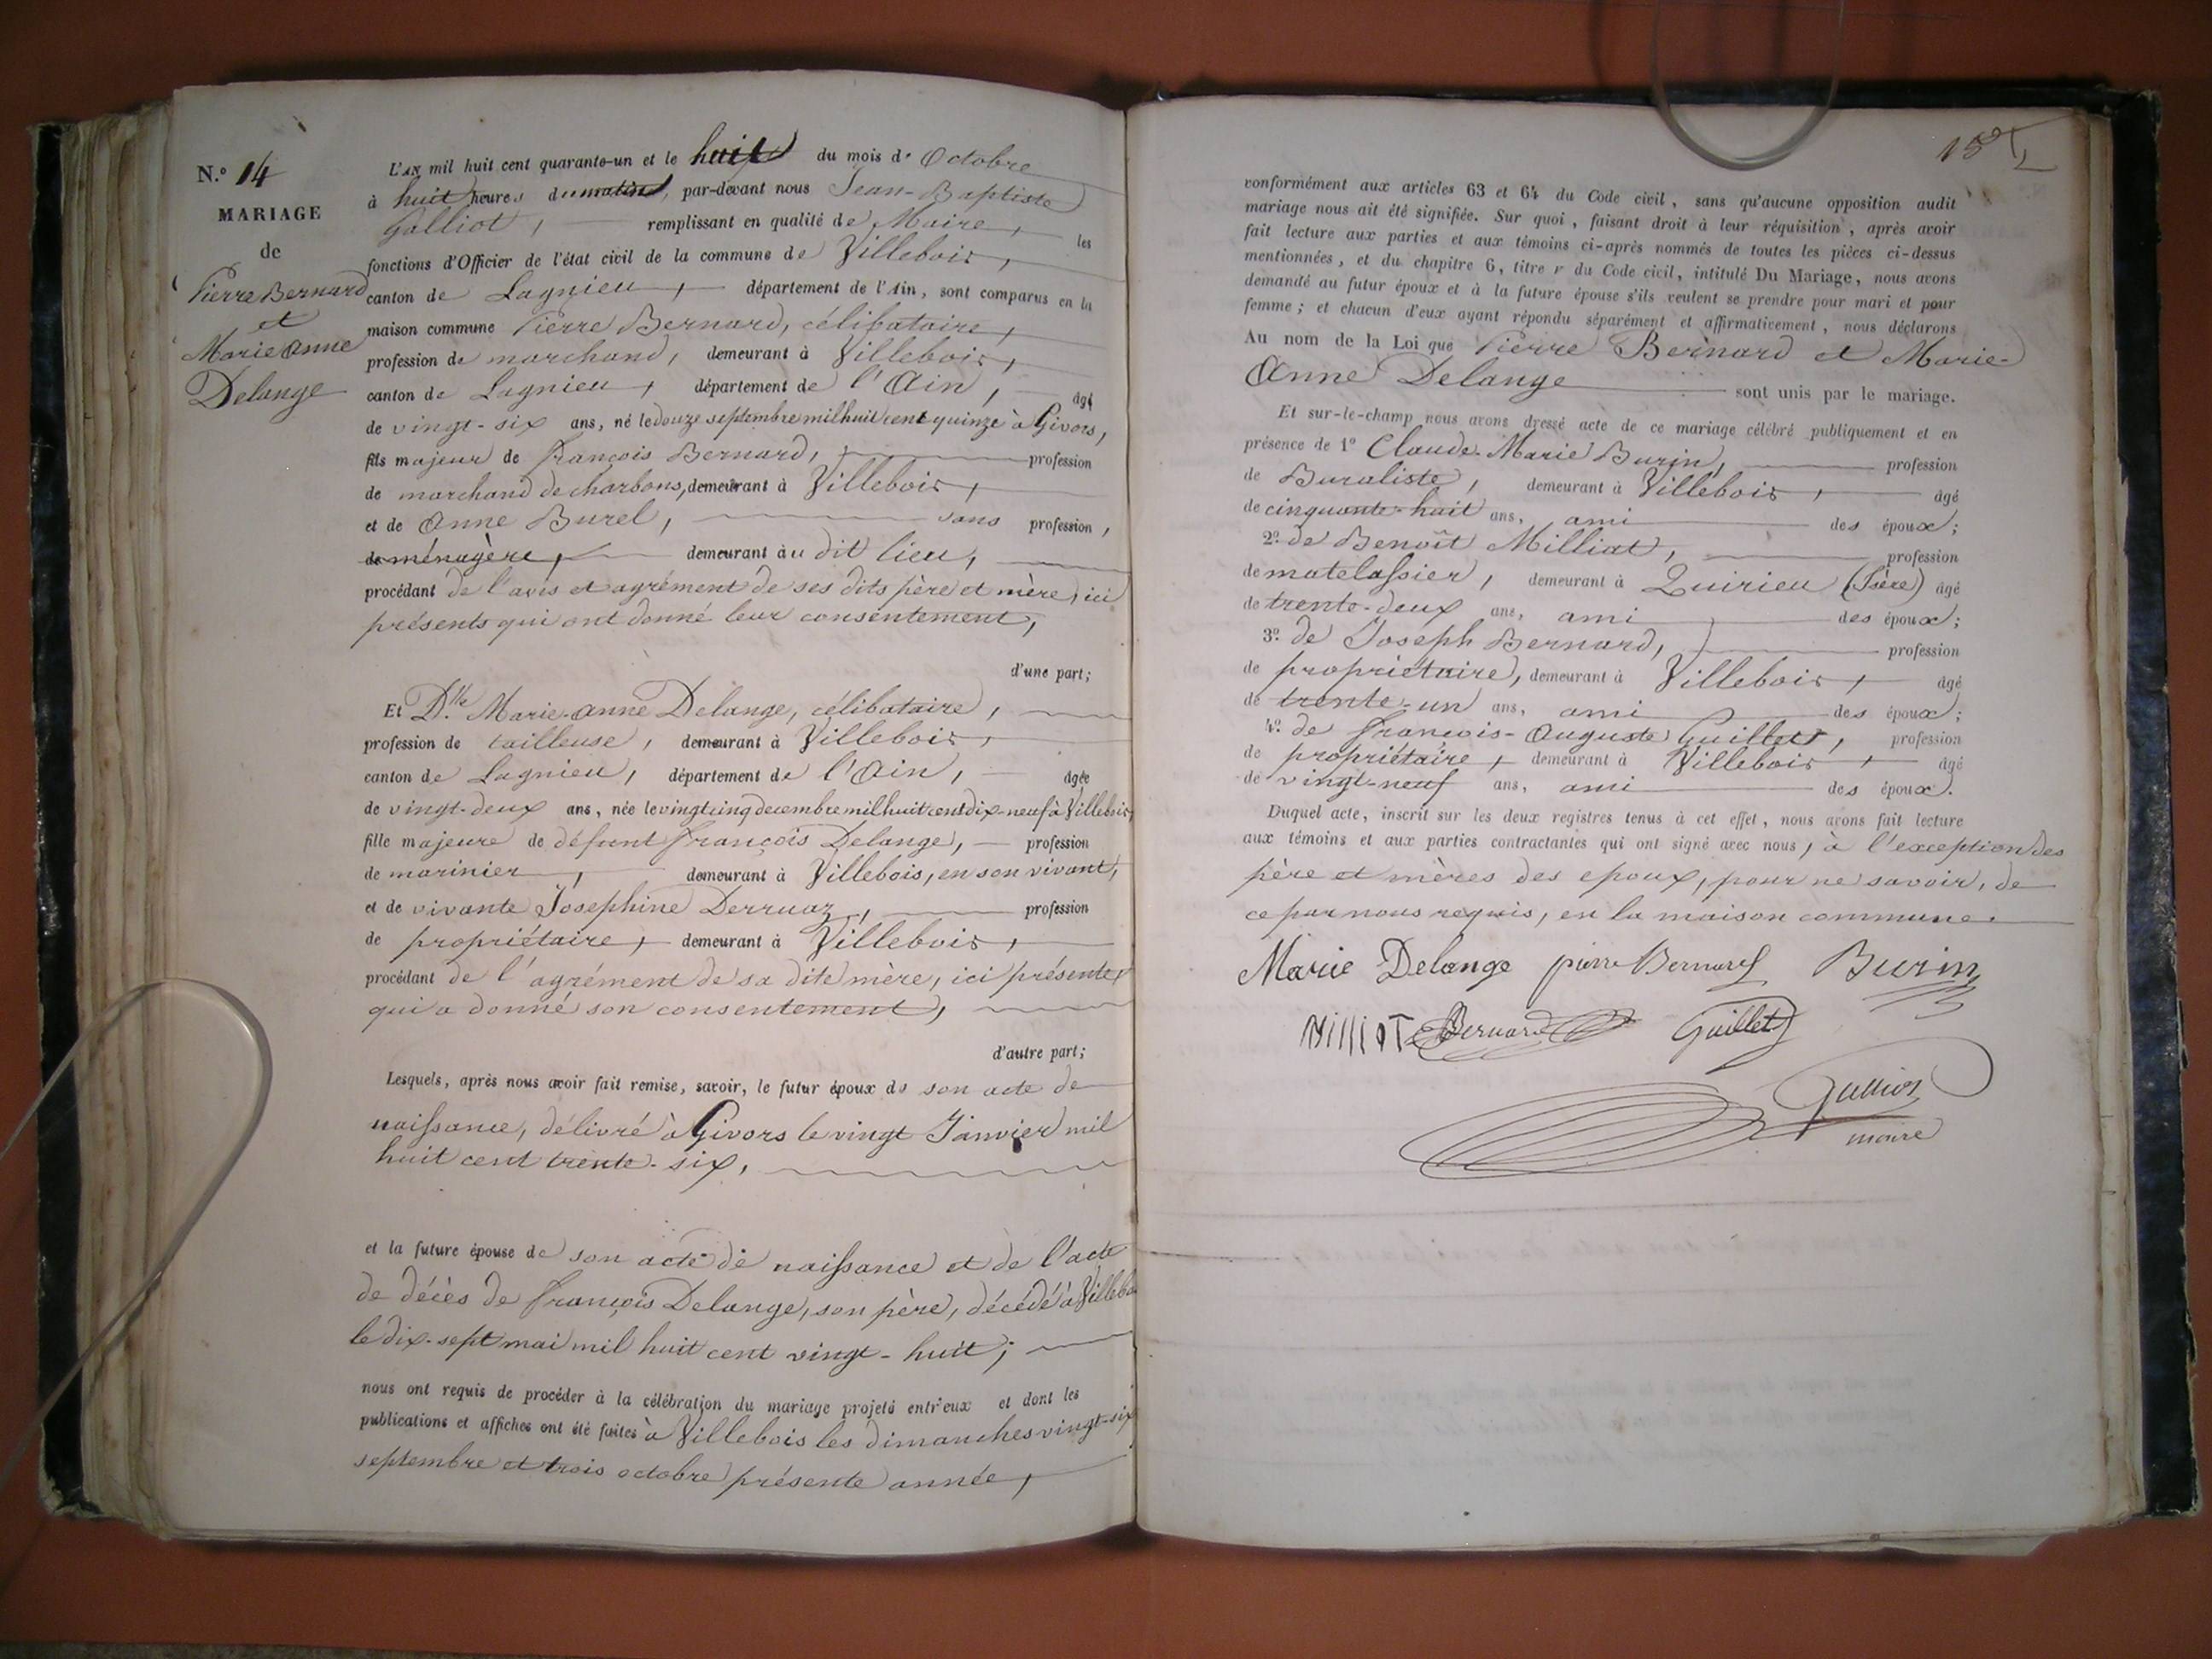 N.º 14
MARIAGE
de
Pierre Bernard
et
Marie Anne
Delange
L'AN mil huit cent quarante-un et le huit du mois d' Octobre
à huit heures du matin, par-devant nous Jean-Baptiste
Galliot, remplissant en qualité de Maire, les
fonctions d'Officier de l'état civil de la commune de Villebois,
canton de Lagnieu, département de l'Ain, sont comparus en la
maison commune Pierre Bernard, célibataire,
profession de marchand, demeurant à Villebois,
canton de Lagnieu, département de l'Ain, âgé
de vingt-six ans, né le douze septembre mil huit cent quinze à Givors,
fils majeur de françois Bernard, profession
de marchand de charbons, demeurant à Villebois,
et de Anne Burel, sans profession,
de ménagère, demeurant au dit lieu,
procédant de l'avis et agrément de ses dits père et mère, ici
présents qui ont donné leur consentement,
d'une part;
Et D.lle Marie-Anne Delange, célibataire,
profession de tailleuse, demeurant à Villebois,
canton de Lagnieu, département de l'Ain, âgée
de vingt-deux ans, née le vingt cinq decembre mil huit cent dix-neuf à Villebois,
fille majeure de défunt françois Delange, profession
de marinier, demeurant à Villebois, en son vivant,
et de vivante Josephine Derruaz, profession
de propriétaire, demeurant à Villebois,
procédant de l'agrément de sa dite mère, ici présente,
qui a donné son consentement,
d'autre part;
Lesquels, après nous avoir fait remise, savoir, le futur époux de son acte de
naissance, délivré à Givors le vingt Janvier mil
huit cent trente-six,
et la future épouse de son acte de naissance et de l'acte
de décès de françois Delange, son père, décédé à Villebo
le dix-sept mai mil huit cent vingt-huit;
nous ont requis de procéder à la célébration du mariage projeté entr'eux et dont les
publications et affiches ont été faites à Villebois les dimanches vingt-six
septembre et trois octobre présente année,
conformément aux articles 63 et 64 du Code civil, sans qu'aucune opposition audit
mariage nous ait été signifiée. Sur quoi, faisant droit à leur réquisition, après avoir
fait lecture aux parties et aux témoins ci-après nommés de toutes les pièces ci-dessus
mentionnées, et du chapitre 6, titre v du Code civil, intitulé Du Mariage, nous avons
demandé au futur époux et à la future épouse s'ils veulent se prendre pour mari et pour
femme; et chacun d'eux ayant répondu séparément et affirmativement, nous déclarons
Au nom de la Loi que Pierre Bernard et Marie-
Anne Delange sont unis par le mariage.
Et sur-le-champ nous avons dressé acte de ce mariage célébré publiquement et en
présence de 1º Claude-Marie Burin, profession
de Buraliste, demeurant à Villebois, âgé
de cinquante-huit ans, ami des époux;
2º de Benoît Milliat, profession
de matelassier, demeurant à Quirieu (Isère) âgé
de trente-deux ans, ami des époux;
3º de Joseph Bernard, profession
de propriétaire, demeurant à Villebois, âgé
de trente-un ans, ami des époux;
4º de françois-Auguste Guillet, profession
de propriétaire, demeurant à Villebois, âgé
de vingt-neuf ans, ami des époux.
Duquel acte, inscrit sur les deux registres tenus à cet effet, nous avons fait lecture
aux témoins et aux parties contractantes qui ont signé avec nous, à l'exception des
père et mères des epoux, pour ne savoir, de
ce par nous requis, en la maison commune.
Marie Delange pierre Bernard Burin
Bernard Guillet
Galliot
maire